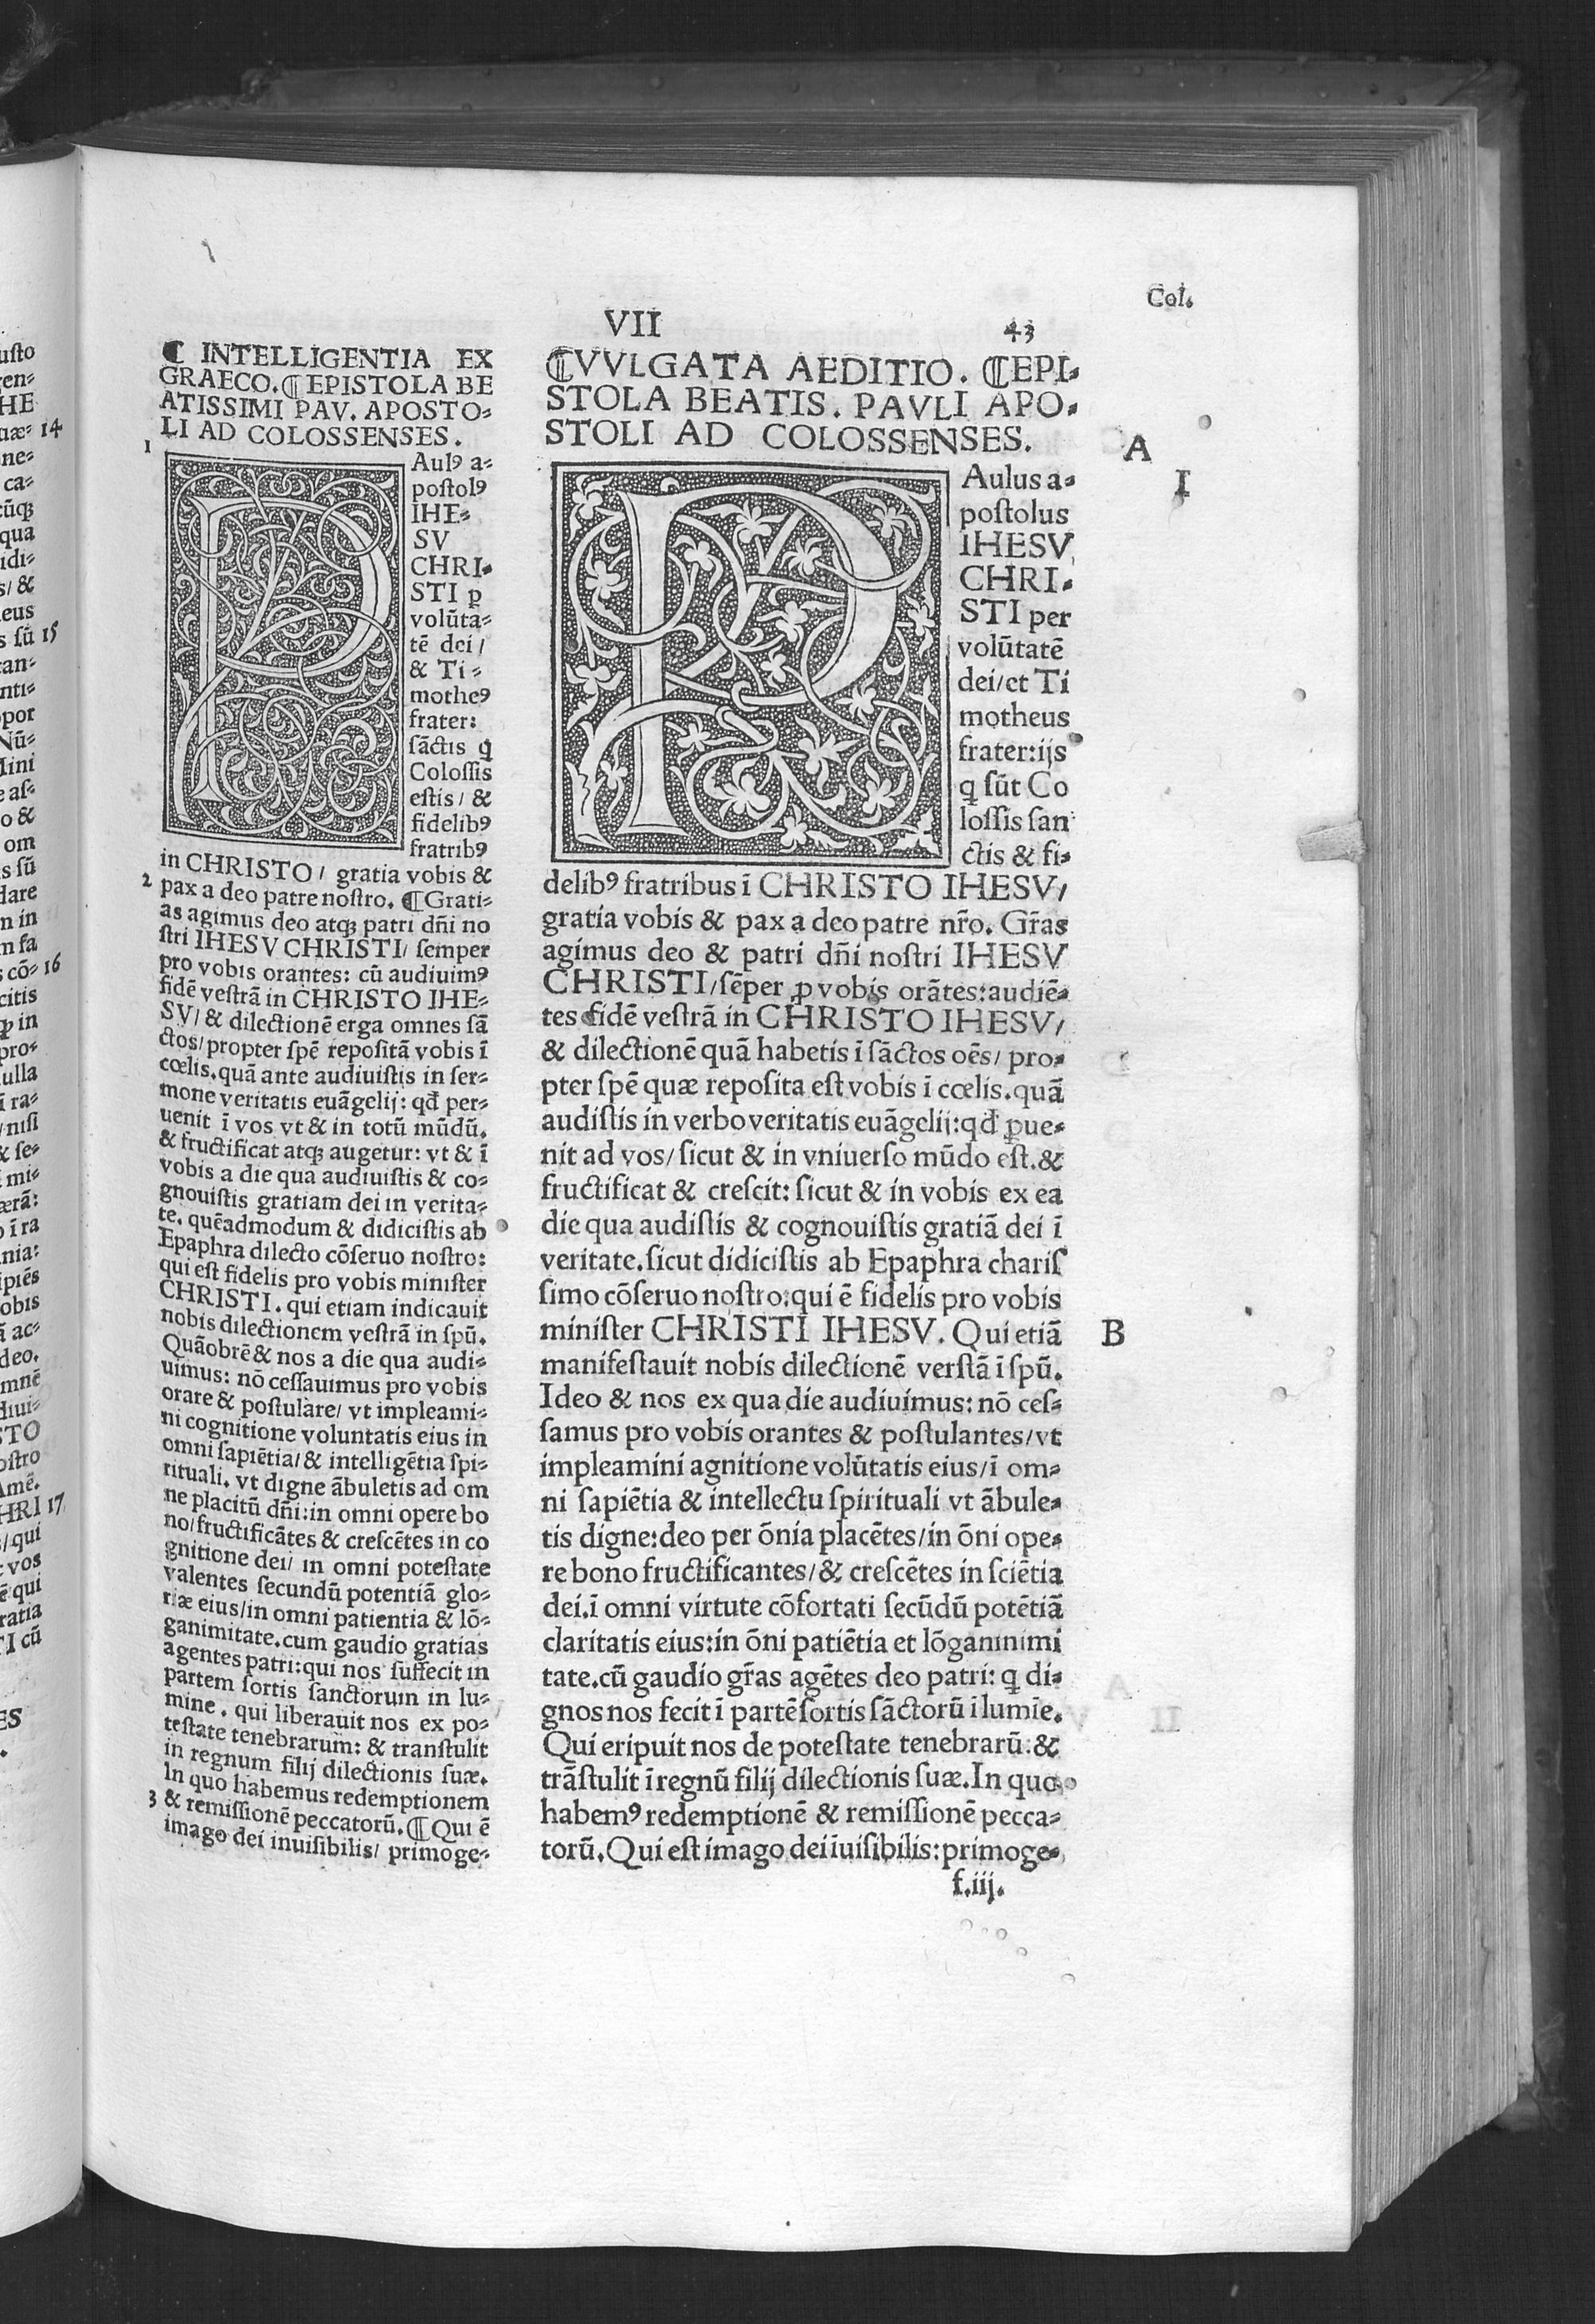 Col.
VII
43
¶ INTELLIGENTIA EX
GRAECO. ¶ EPISTOLA BE
ATISSIMI PAV. APOSTO⸗
LI AD COLOSSENSES.
1
P
Aulꝰ a⸗
poſtolꝰ
IHE⸗
SV
CHRI⸗
STI ꝑ
volūta⸗
tē dei /
& Ti⸗
motheꝰ
frater:
ſāctis q̇
Coloſſis
eſtis / &
fidelibꝰ
fratribꝰ
in CHRISTO / gratia vobis &
2 pax a deo patre noſtro. ¶ Grati⸗
as agimus deo atqꝫ patri dñi no
ſtri IHESV CHRISTI / ſemper
pro vobis orantes: cū audiuimꝰ
fidē veſtrā in CHRISTO IHE⸗
SV / & dilectionē erga omnes ſā
ctos / propter ſpē repoſitā vobis ī
cœlis. quā ante audiuiſtis in ſer⸗
mone veritatis euāgelij: qđ per⸗
uenit ī vos vt & in totū mūdū.
& fructificat atqꝫ augetur: vt & ī
vobis a die qua audiuiſtis & co⸗
gnouiſtis gratiam dei in verita⸗
te. quēadmodum & didiciſtis ab
Epaphra dilecto cōſeruo noſtro:
qui eſt fidelis pro vobis miniſter
CHRISTI. qui etiam indicauit
nobis dilectionem veſtrā in ſpū.
Quāobrē & nos a die qua audi⸗
uimus: nō ceſſauimus pro vobis
orare & poſtulare / vt impleami⸗
ni cognitione voluntatis eius in
omni ſapiētia / & intelligētia ſpi⸗
rituali. vt digne ābuletis ad om
ne placitū dñi: in omni opere bo
no / fructificātes & creſcētes in co
gnitione dei / in omni poteſtate
valentes ſecundū potentiā glo⸗
riæ eius / in omni patientia & lō⸗
ganimitate. cum gaudio gratias
agentes patri: qui nos ſuffecit in
partem ſortis ſanctorum in lu⸗
mine. qui liberauit nos ex po⸗
teſtate tenebrarum: & tranſtulit
in regnum filij dilectionis ſuæ.
In quo habemus redemptionem
3 & remiſſionē peccatorū. ¶ Qui ē
imago dei inuiſibilis / primoge⸗
¶ VVLGATA AEDITIO. ¶ EPI⸗
STOLA BEATIS. PAVLI APO⸗
STOLI AD COLOSSENSES.
A
I
P
Aulus a⸗
poſtolus
IHESV
CHRI⸗
STI per
volūtatē
dei / et Ti
motheus
frater: ijs
q ſūt Co
loſſis ſan
ctis & fi⸗
delibꝰ fratribus ī CHRISTO IHESV /
gratia vobis & pax a deo patre nr̄o. Gr̄as
agimus deo & patri dñi noſtri IHESV
CHRISTI / ſēper ꝓ vobis orātes: audiē⸗
tes fidē veſtrā in CHRISTO IHESV /
& dilectionē quā habetis ī ſāctos oēs / pro⸗
pter ſpē quæ repoſita eſt vobis ī cœlis. quā
audiſtis in verbo veritatis euāgelij: qđ ꝑue⸗
nit ad vos / ſicut & in vniuerſo mūdo eſt. &
fructificat & creſcit: ſicut & in vobis ex ea
die qua audiſtis & cognouiſtis gratiā dei ī
veritate. ſicut didiciſtis ab Epaphra chariſ
ſimo cōſeruo noſtro: qui ē fidelis pro vobis
miniſter CHRISTI IHESV. Qui etiā
B
manifeſtauit nobis dilectionē verſtā ī ſpū.
Ideo & nos ex qua die audiuimus: nō ceſ⸗
ſamus pro vobis orantes & poſtulantes / vt
impleamini agnitione volūtatis eius / ī om⸗
ni ſapiētia & intellectu ſpirituali vt ābule⸗
tis digne: deo per ōnia placētes / in ōni ope⸗
re bono fructificantes / & creſcētes in ſciētia
dei. ī omni virtute cōfortati ſecūdū potētiā
claritatis eius: in ōni patiētia et lōganinimi
tate. cū gaudio gr̄as agētes deo patri: q di⸗
gnos nos fecit ī partē ſortis ſāctorū ī lumīe.
Qui eripuit nos de poteſtate tenebrarū: &
trāſtulit ī regnū filij dilectionis ſuæ. In quo
habemꝰ redemptionē & remiſſionē pecca⸗
torū. Qui eſt imago dei īuiſibilis: primoge⸗
f.iij.
14
15
16
17